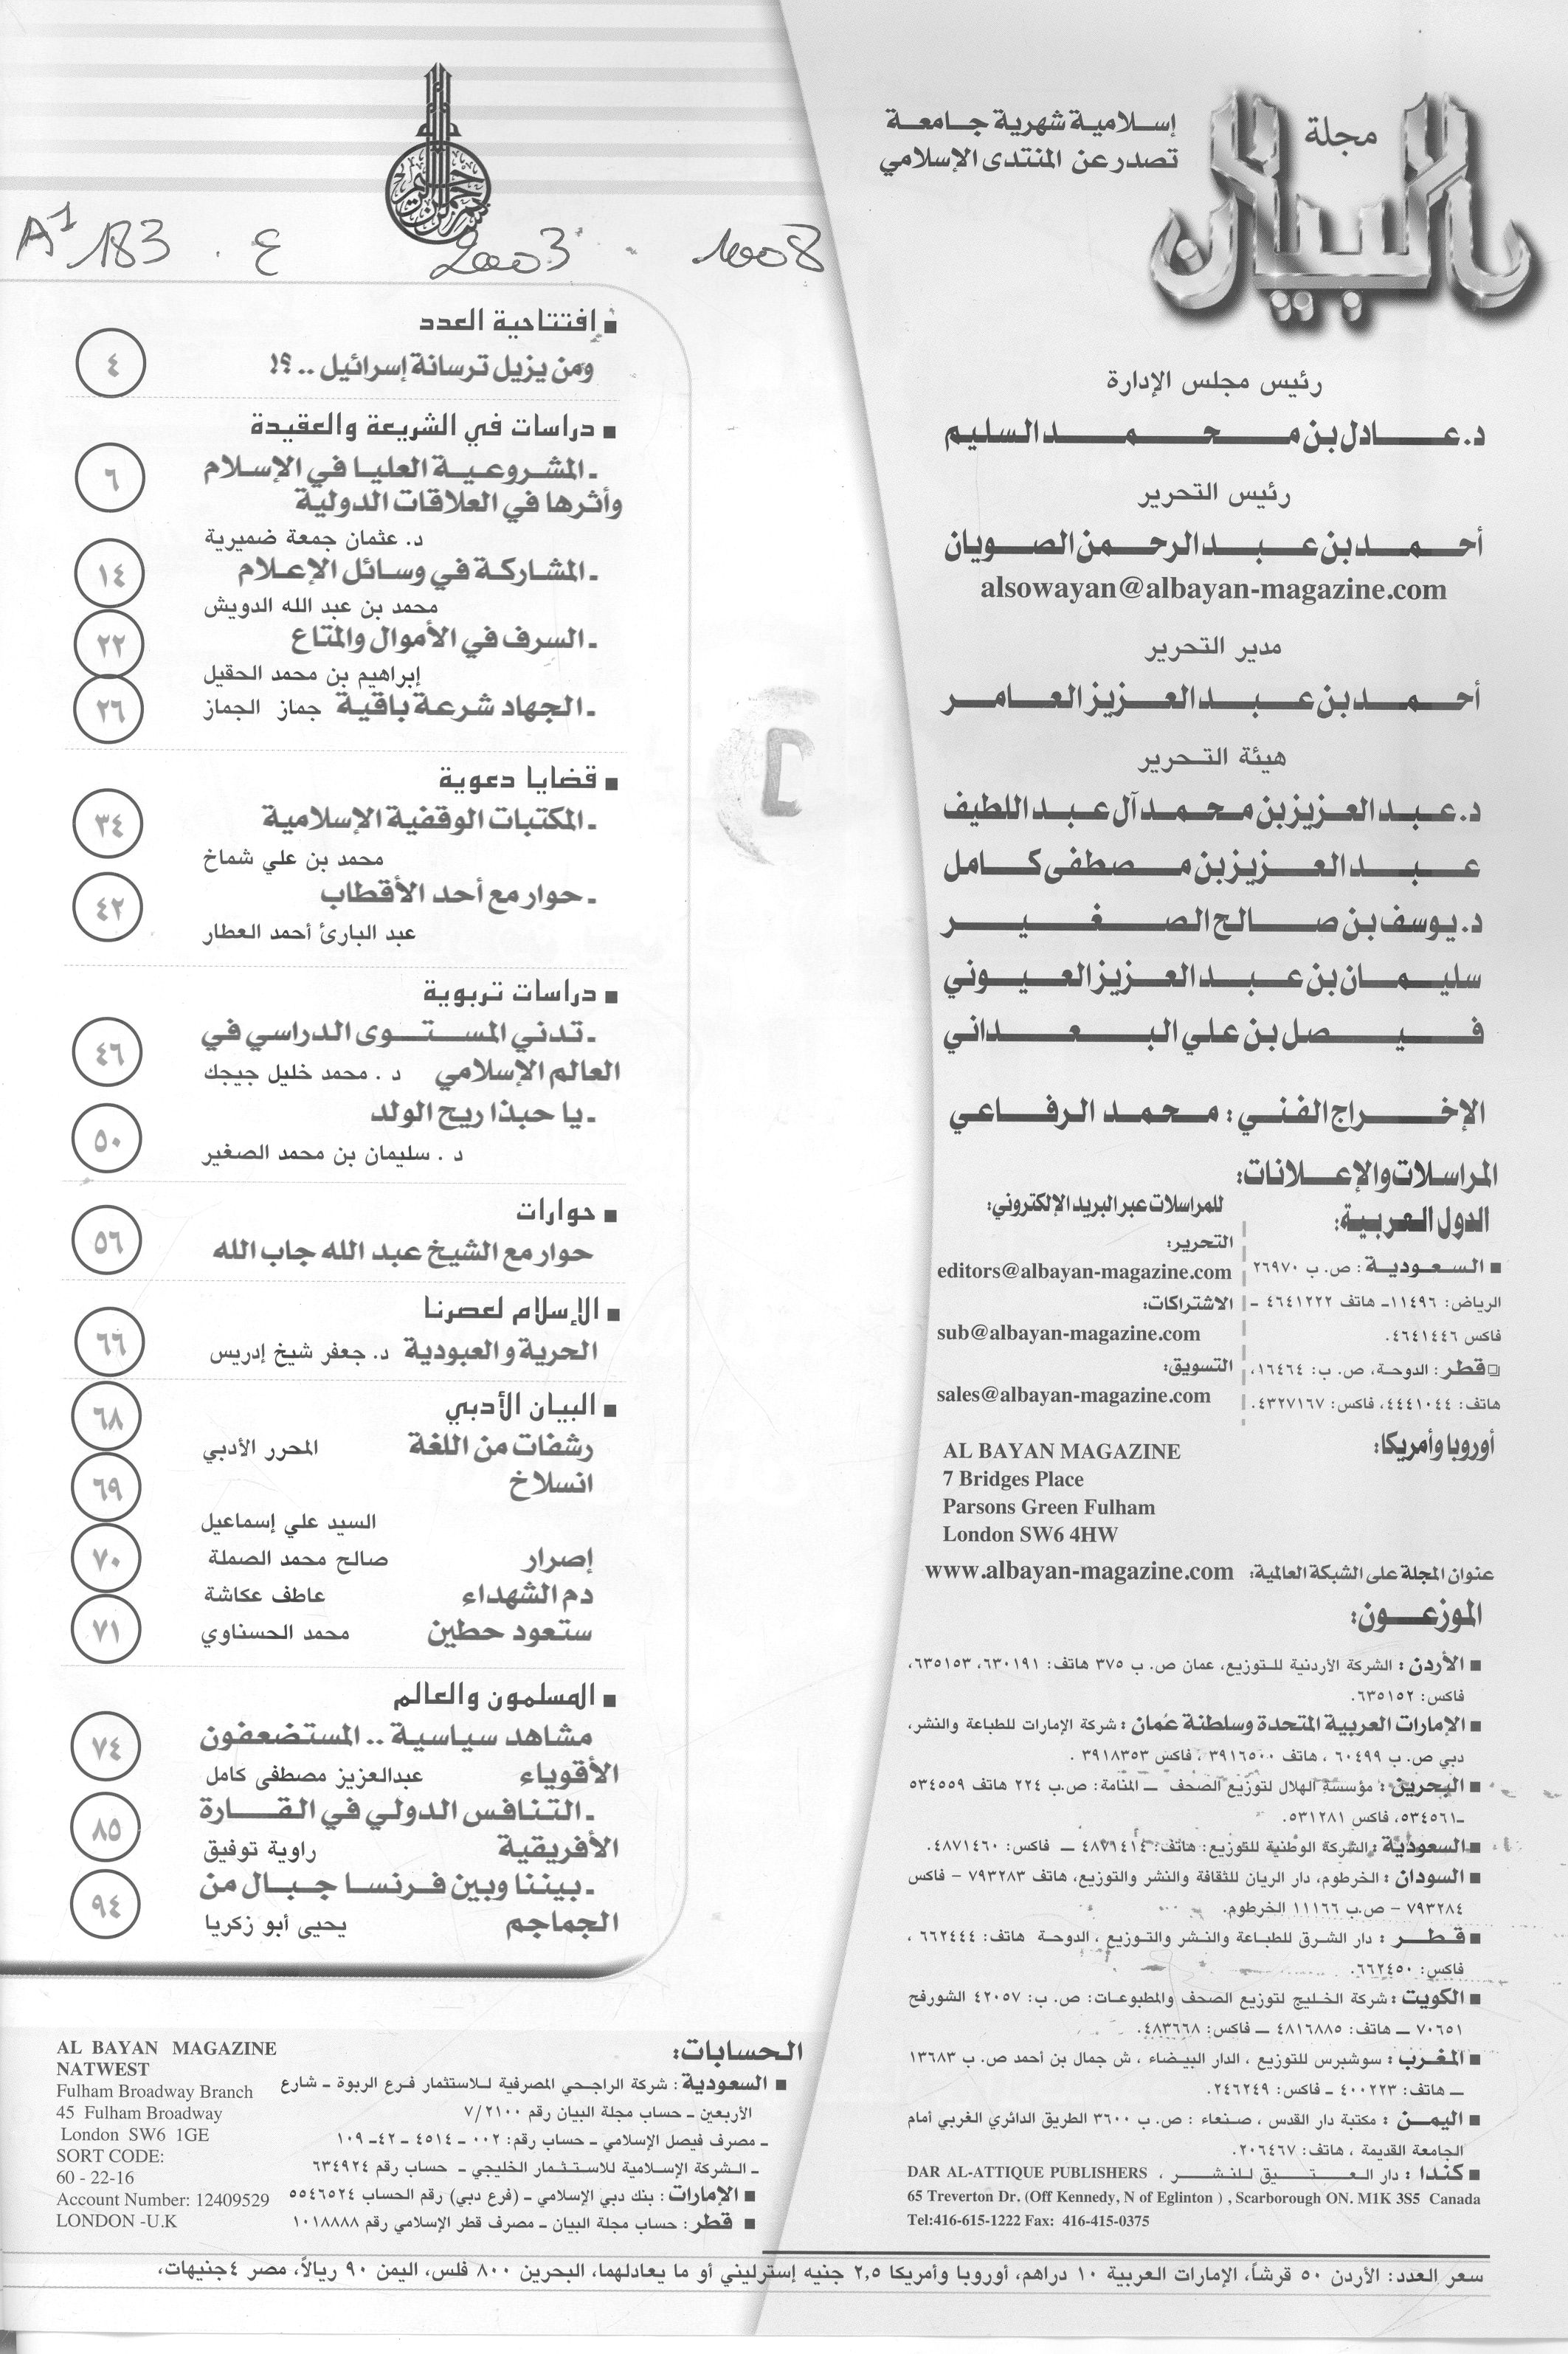 مجلة
البيان
إسلامية شهرية جامعة
تصدر عن المنتدى الإسلامي
رئيس مجلس الإدارة
د. عادل بن محمد السليم
رئيس التحرير
أحمد بن عبد الرحمن الصويان
alsowayan@albayan-magazine.com
مدير التحرير
أحمد بن عبد العزيز العامر
هيئة التحرير
د. عبد العزيز بن محمد آل عبد اللطيف
عبد العزيز بن مصطفى كامل
د. يوسف بن صالح الصغير
سليمان بن عبد العزيز العيوني
فيصل بن علي البعداني
الإخراج الفني: محمد الرفاعي
المراسلات والإعلانات:
الدول العربية:
■ السعودية: ص. ب ٢٦٩٧٠
الرياض: ١١٤٩٦ـ هاتف ٤٦٤١٢٢٢ -
فاكس ٤٦٤١٤٤٦.
❏ قطر: الدوحة، ص. ب: ١٦٤٦٤،
هاتف: ٤٤٤١٠٤٤، فاكس: ٤٣٢٧١٦٧.
للمراسلات عبر البريد الإلكتروني:
التحرير:
editors@albayan-magazine.com
الاشتراكات:
sub@albayan-magazine.com
التسويق:
sales@albayan-magazine.com
أوروبا وأمريكا:
AL BAYAN MAGAZINE
7 Bridges Place
Parsons Green Fulham
London SW6 4HW
عنوان المجلة على الشبكة العالمية: www.albayan-magazine.com
الموزعون:
■ الأردن: الشركة الأردنية للتوزيع، عمان ص. ب ٣٧٥ هاتف: ٦٣٠١٩١، ٦٣٥١٥٣،
فاكس: ٦٣٥١٥٢.
■ الإمارات العربية المتحدة وسلطنة عُمان: شركة الإمارات للطباعة والنشر،
دبي ص. ب ٦٠٤٩٩ ، هاتف ٣٩١٦٥٠٠ ، فاكس ٣٩١٨٣٥٣ .
■ البحرين: مؤسسة الهلال لتوزيع الصحف ــ المنامة: ص.ب ٢٢٤ هاتف ٥٣٤٥٥٩
ـ٥٣٤٥٦١، فاكس ٥٣١٢٨١.
■ السعودية: الشركة الوطنية للتوزيع: هاتف: ٤٨٧١٤١٤ ــ فاكس: ٤٨٧١٤٦٠.
■ السودان: الخرطوم، دار الريان للثقافة والنشر والتوزيع، هاتف ٧٩٣٢٨٣ - فاكس
٧٩٣٢٨٤ - ص.ب ١١١٦٦ الخرطوم.
■ قطر: دار الشرق للطباعة والنشر والتوزيع ، الدوحة هاتف: ٦٦٢٤٤٤ ،
فاكس: ٦٦٢٤٥٠.
■ الكويت: شركة الخليج لتوزيع الصحف والمطبوعات: ص. ب: ٤٢٠٥٧ الشورفح
٧٠٦٥١ ــ هاتف: ٤٨١٦٨٨٥ ــ فاكس: ٤٨٣٦٦٨.
■ المغرب: سوشبرس للتوزيع ، الدار البيضاء ، ش جمال بن أحمد ص. ب ١٣٦٨٣
ــ هاتف: ٤٠٠٢٢٣ ـ فاكس: ٢٤٦٢٤٩.
■ اليمن: مكتبة دار القدس ، صنعاء : ص. ب ٣٦٠٠ الطريق الدائري الغربي أمام
الجامعة القديمة ، هاتف: ٢٠٦٤٦٧.
■ كندا: دار العتيق للنشر ، DAR AL-ATTIQUE PUBLISHERS
65 Treverton Dr. (Off Kennedy, N of Eglinton ) , Scarborough ON. M1K 3S5 Canada
Tel:416-615-1222 Fax: 416-415-0375
A1 183 . ع 2003 . 1008
■ إفتتاحية العدد
ومن يزيل ترسانة إسرائيل ..؟! ٤
■ دراسات في الشريعة والعقيدة
ـ المشروعية العليا في الإسلام ٦
وأثرها في العلاقات الدولية
د. عثمان جمعة ضميرية
ـ المشاركة في وسائل الإعلام ١٤
محمد بن عبد الله الدويش
ـ السرف في الأموال والمتاع ٢٢
إبراهيم بن محمد الحقيل
ـ الجهاد شرعة باقية جماز الجماز ٢٦
■ قضايا دعوية
ـ المكتبات الوقفية الإسلامية ٣٤
محمد بن علي شماخ
ـ حوار مع أحد الأقطاب ٤٢
عبد البارئ أحمد العطار
■ دراسات تربوية
ـ تدني المستوى الدراسي في ٤٦
العالم الإسلامي د . محمد خليل جيجك
ـ يا حبذا ريح الولد ٥٠
د . سليمان بن محمد الصغير
■ حوارات
حوار مع الشيخ عبد الله جاب الله ٥٦
■ الإسلام لعصرنا
الحرية والعبودية د. جعفر شيخ إدريس ٦٦
■ البيان الأدبي ٦٨
رشفات من اللغة المحرر الأدبي
انسلاخ ٦٩
السيد علي إسماعيل
إصرار صالح محمد الصملة ٧٠
دم الشهداء عاطف عكاشة
ستعود حطين محمد الحسناوي ٧١
■ المسلمون والعالم
مشاهد سياسية .. المستضعفون ٧٤
الأقوياء عبدالعزيز مصطفى كامل
ـ التنافس الدولي في القارة ٨٥
الأفريقية راوية توفيق
ـ بيننا وبين فرنسا جبال من ٩٤
الجماجم يحيى أبو زكريا
الحسابات:
■ السعودية: شركة الراجحي المصرفية للاستثمار فرع الربوة ـ شارع
الأربعين ـ حساب مجلة البيان رقم ٧/٢١٠٠
ـ مصرف فيصل الإسلامي ـ حساب رقم: ٠٠٢ - ٤٥١٤ - ٤٢- ١٠٩
ـ الشركة الإسلامية للاستثمار الخليجي ـ حساب رقم ٦٣٤٩٢٤
■ الإمارات: بنك دبي الإسلامي ـ (فرع دبي) رقم الحساب ٥٥٤٦٥٢٤
■ قطر: حساب مجلة البيان ـ مصرف قطر الإسلامي رقم ١٠١٨٨٨٨
AL BAYAN MAGAZINE
NATWEST
Fulham Broadway Branch
45 Fulham Broadway
London SW6 1GE
SORT CODE:
60 - 22-16
Account Number: 12409529
LONDON -U.K
سعر العدد: الأردن ٥٠ قرشاً، الإمارات العربية ١٠ دراهم، أوروبا وأمريكا ٢,٥ جنيه إسترليني أو ما يعادلهما، البحرين ٨٠٠ فلس، اليمن ٩٠ ريالاً، مصر ٤جنيهات،